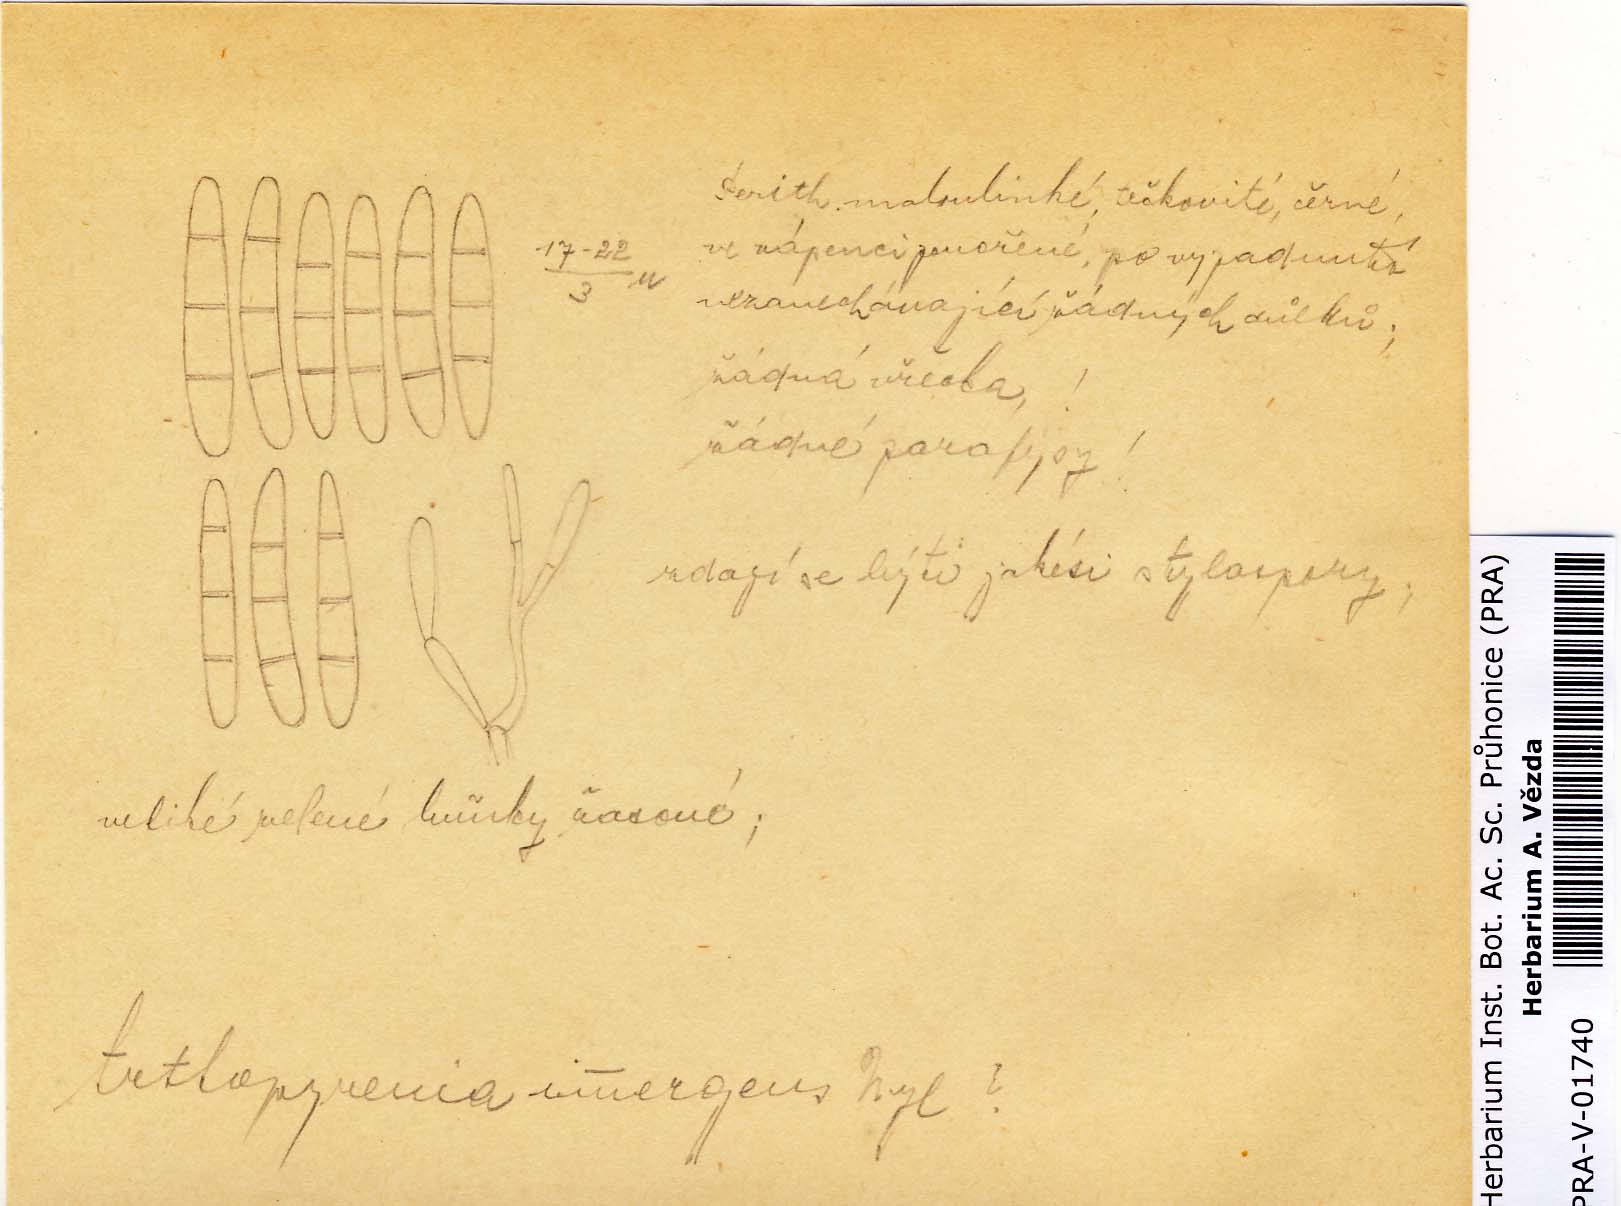 Perith. maloulinké, tečkovité, černé,
ve vápenci ponořené, po vypadnutí
nezanechávající žádných důlků;
17-22
3 μ
žádná vřecka, !
žádné parafysy !
zdají se býti jakési stylospory;
veliké zelené buňky řasové;
Arthopyrenia im̄ergens Nyl ?
Herbarium Inst. Bot. Ac. Sc. Průhonice (PRA)
Herbarium A. Vězda
PRA-V-01740